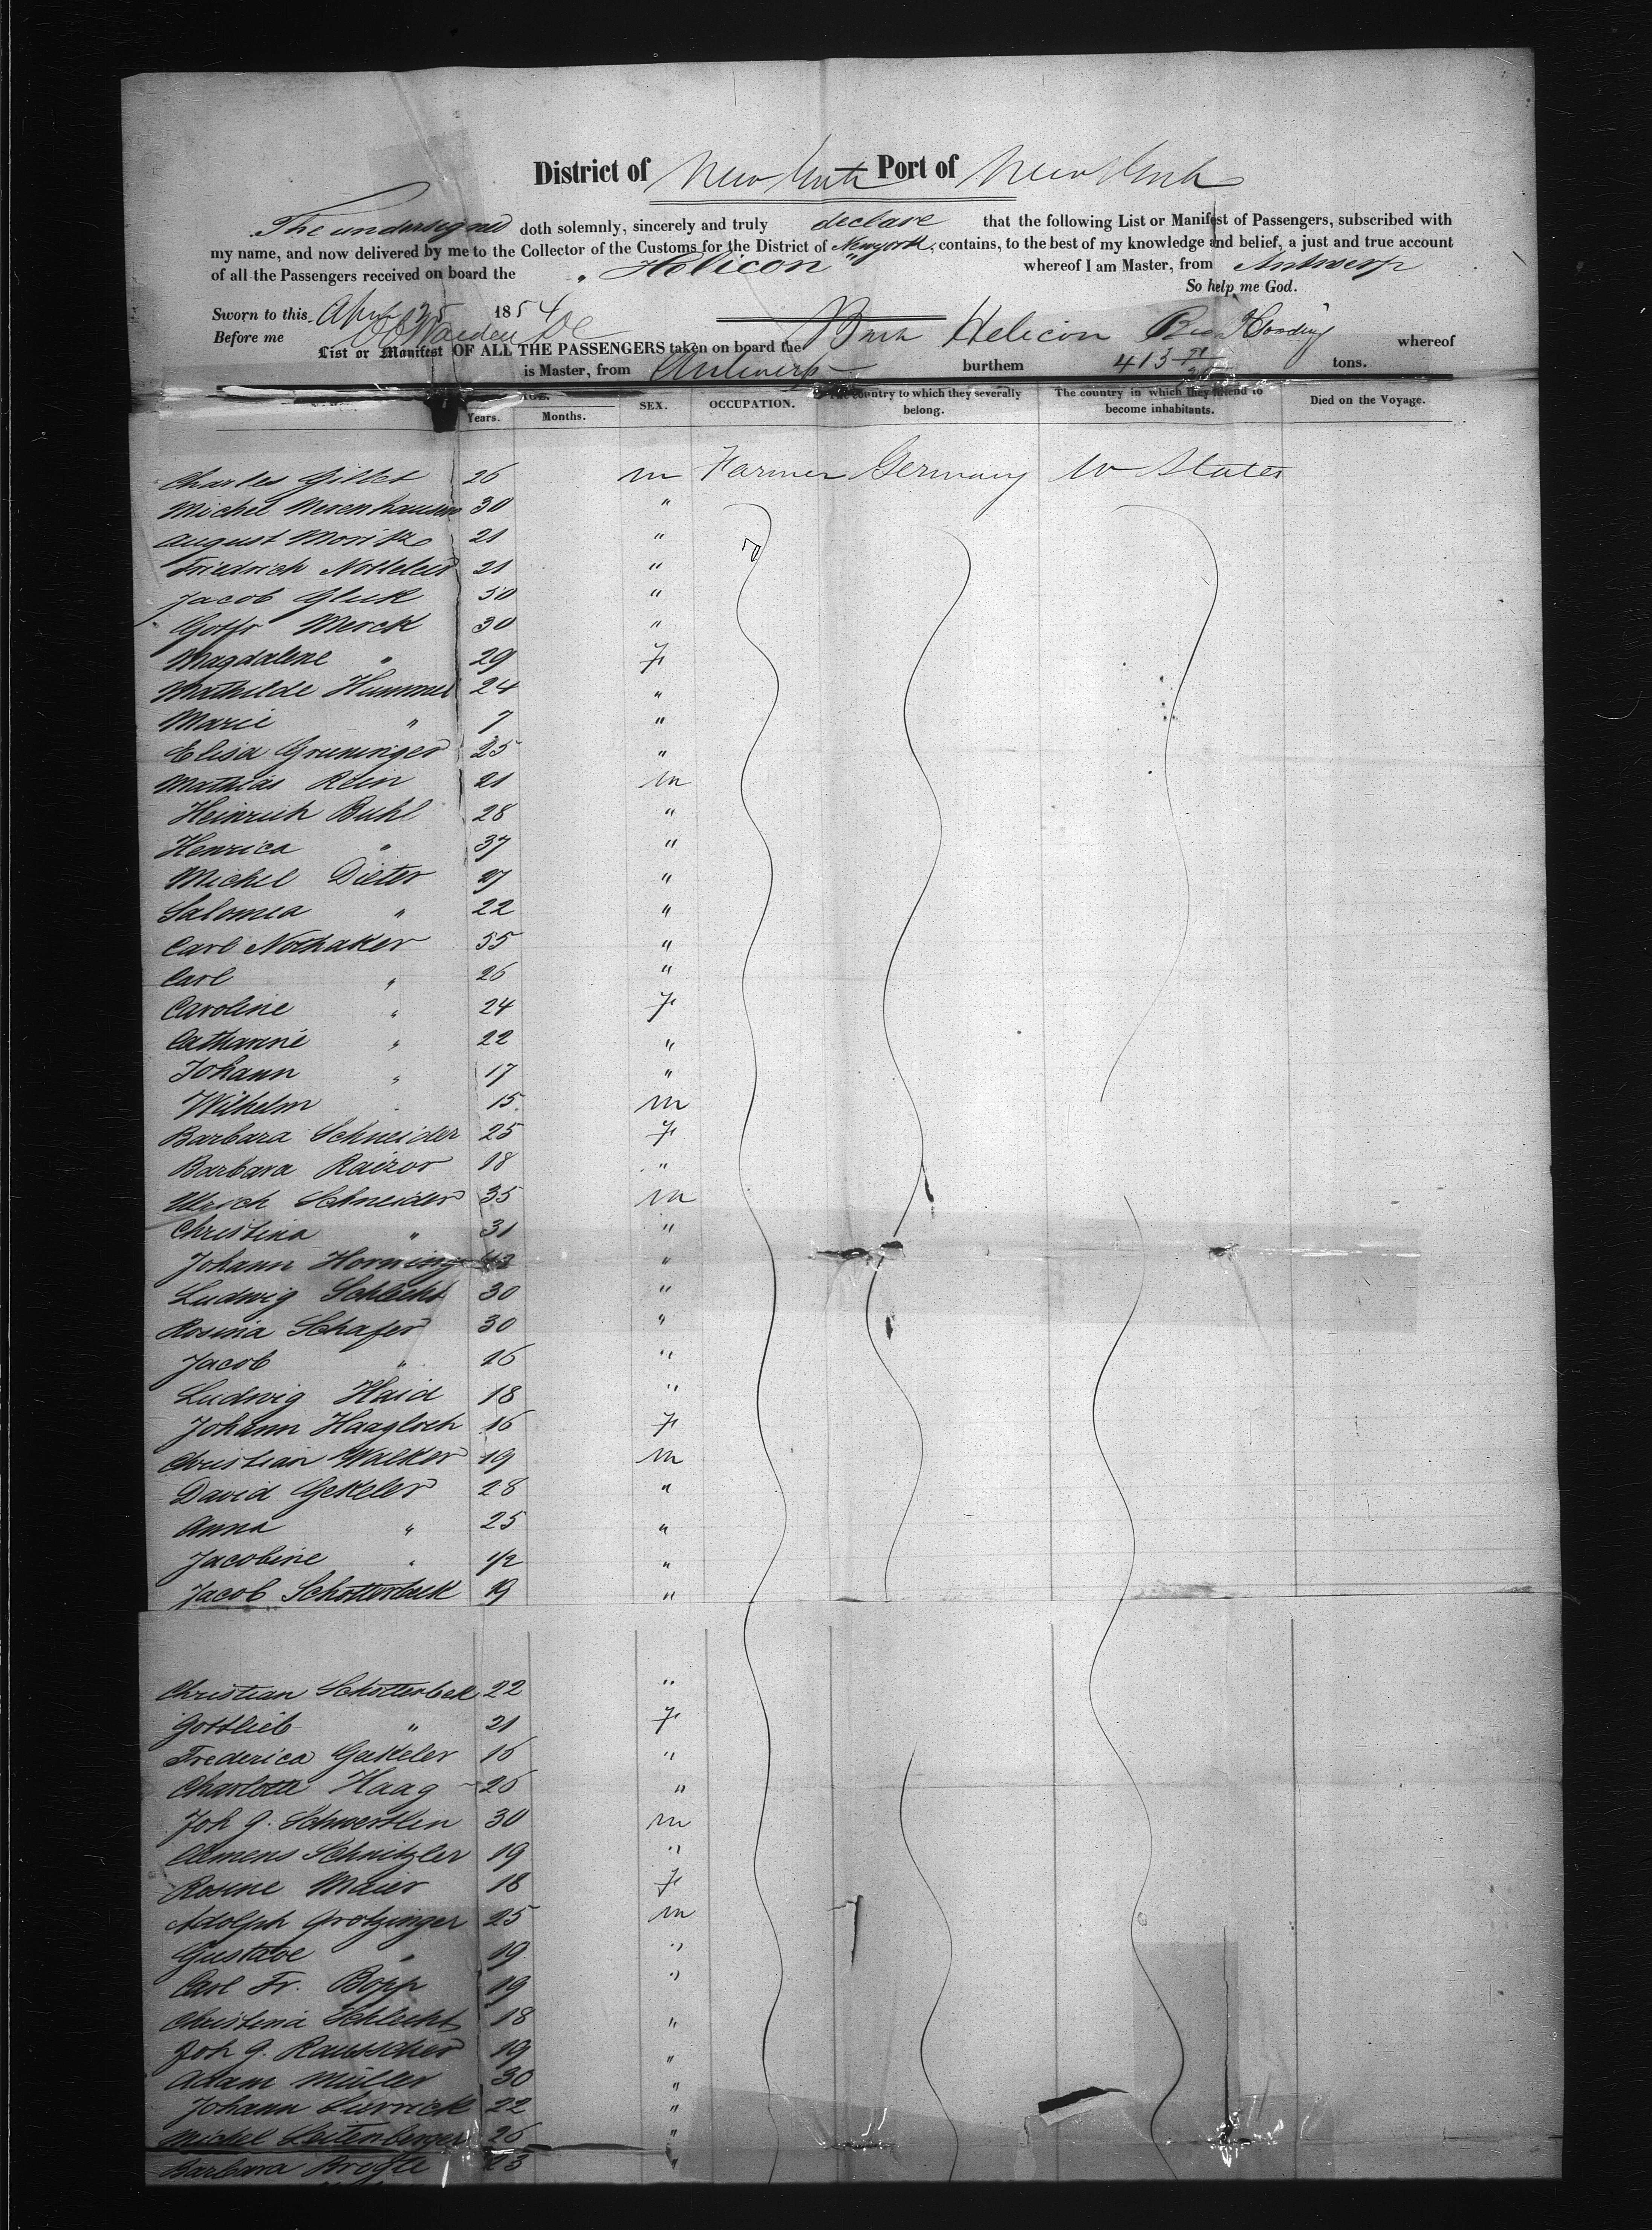 District of New York Port of New York
The undersigned doth solemnly, sincerely and truly declare that the following List or Manifest of Passengers, subscribed with
my name, and now delivered by me to the Collector of the Customs for the District of Newyork, contains, to the best of my knowledge and belief, a just and true account
of all the Passengers received on board the "Helicon" whereof I am Master, from Antwerp
So help me God.
Sworn to this April 25 1854
Before me
List or Manifest OF ALL THE PASSENGERS taken on board the Bark Helicon whereof
is Master, from Antwerp burthem 413 tons.
AGE. Years. Months. SEX. OCCUPATION. The country to which they severally belong. The country in which they intend to become inhabitants. Died on the Voyage.
Charles Gillet 26 m Farmer Germany U States
Michel 30 "
August Moritz 21 "
Friedrich 21 "
Jacob Gluk 50 "
Gottfr Merck 30 "
Magdalene " 29 F
Mathilde Hummel 24 "
Marie " 7 "
Elisa Gruninger 25 "
Mathias Rein 21 m
Heinrich Buhl 28 "
Henrica " 37 "
Michel Dieter 27 "
Salomea " 22 "
Carl Nothaker 55 "
Carl " 26 "
Caroline " 24 F
Catharine " 22 "
Johann " 17 "
Wilhelm 15 m
Barbara Schneider 25 F
Barbara Raizor 18 "
Ulrich Schneider 35 m
Christina " 31 "
Johann Horning "
Ludwig Schlecht 30 "
Rosina Schafer 30 "
Jacob " 16 "
Ludwig Haid 18 "
Johann Haagloch 16 F
Christian Walker 19 m
David Gekeler 28 "
Anna " 25 "
Jacobine " 1/2 "
Jacob Schotterbek 19 "
Christian Schotterbek 22 "
Gottlieb " 21 F
Frederica Gekeler 16 "
Charlotte Haag 26 "
Joh G. Schwertlen 30 m
Clemens Schnitzler 19 "
Rosine Maier 18 F
Adolph Grotzinger 25 m
Gustave " 19 "
Carl Fr. Bopp 19 "
Christina Schlecht 18 "
Joh G. Rauscher 19 "
Adam Müller 30 "
Johann 22 "
Michel Leitenberger 26 "
Barbara Brogle 23 "